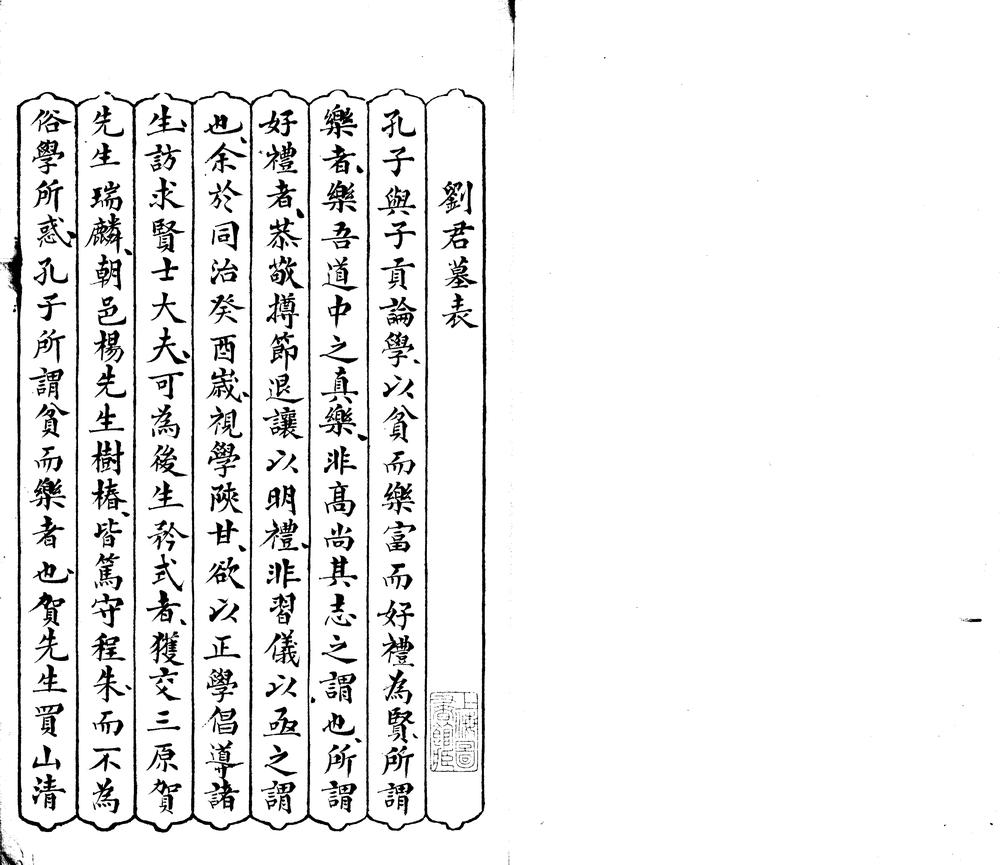 劉君墓表
孔子與子貢論學、以貧而樂富而好禮為賢、所謂
樂者、樂吾道中之真樂、非高尚其志之謂也、所謂
好禮者、恭敬撙節退讓以明禮、非習儀以亟之謂
也、余於同治癸酉嵗、視學陝甘、欲以正學倡導諸
生、訪求賢士大夫、可為後生矜式者、獲交三原賀
先生瑞麟、朝邑楊先生樹椿、皆篤守程朱、而不為
俗學所惑、孔子所謂貧而樂者也、賀先生買山清
上海圖書館藏